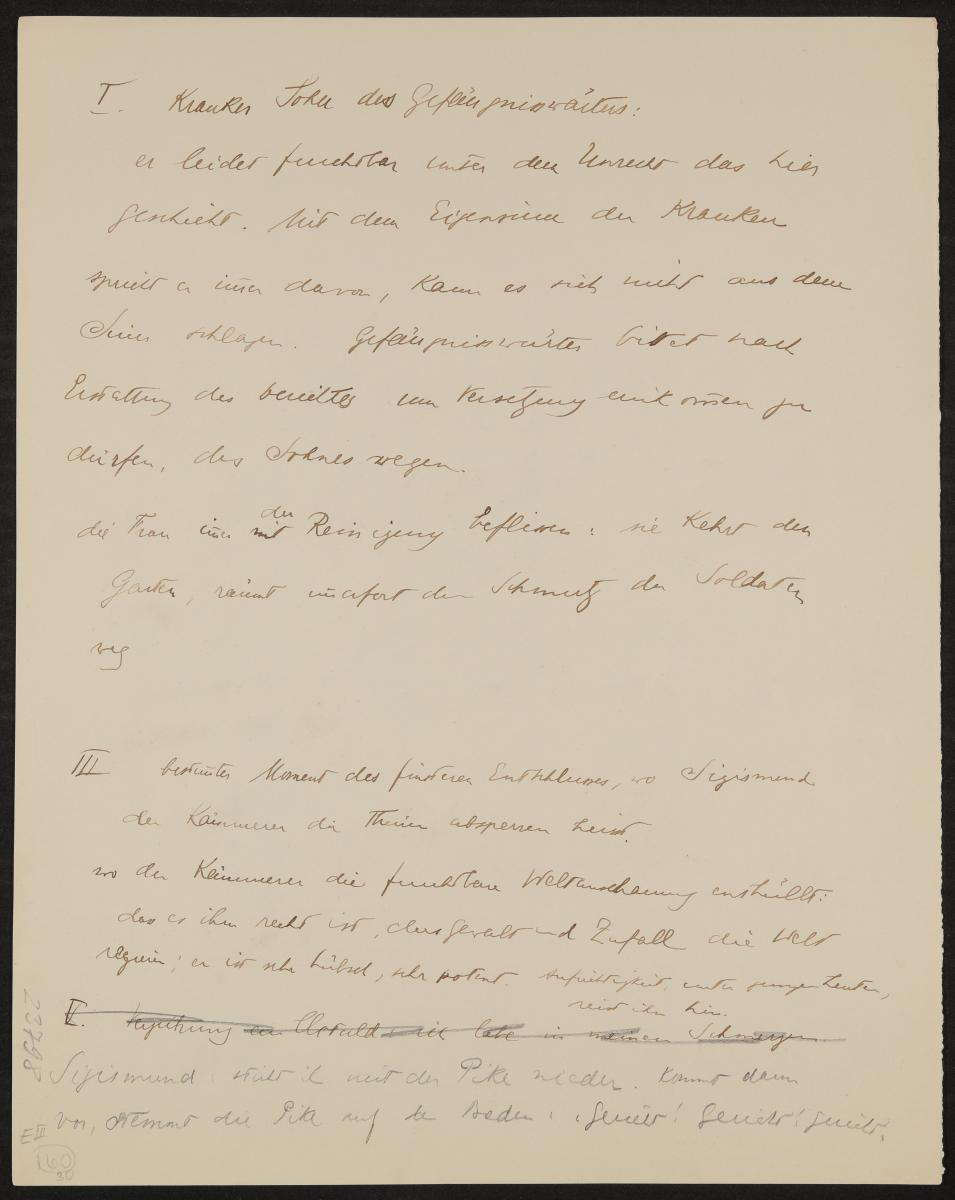 I. Kranker Sohn des Gefängnisswärters:
er leidet furchtbar unter dem Unrecht das hier
geschieht. Mit dem Eigensinn der Kranken
spricht er immer davon, kann es sich nicht aus dem
Sinn schlagen. Gefängnisswärter bittet nach
Erstattung des berichtes um Versetzung einkommen zu
dürfen, des Sohnes wegen.
der
die Frau immer mit Reinigung beflissen: sie kehrt den
Garten, räumt den Schmutz der Soldaten
weg
III bestimmter Moment des finsteren Entschlusses, wo Sigismund
den Kämmerer die Thür absperren heisst.
wo der Kämmerer die furchtbare Weltanschauung enthüllt:
dass es ihm recht ist, dass Gewalt und Zufall die Welt
regieren; er ist sehr hübsch, sehr potent. Aufrichtigkeit, unter jungen Leuten,
reisst ihn hin.
V. in meinen Schmerzen.
Sigismund: mit der Pike nieder. Kommt dann
vor, stemmt die Pike auf den Boden: Gericht! Gericht! Gericht!
23798
E III
160
30